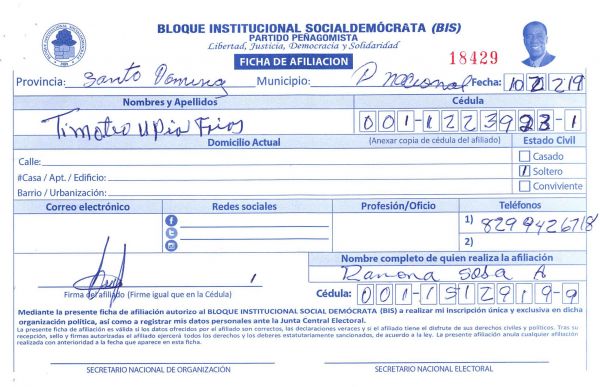 BLOQUE INSTITUCIONAL SOCIALDEMÓCRATA (BIS)
PARTIDO PEÑAGOMISTA
Libertad, Justicia, Democracia y Solidaridad
FICHA DE AFILIACION
18429
Provincia: Santo Domingo Municipio: D nacional Fecha:
Nombres y Apellidos Cédula
Timoteo Upia Frias 001-1223923-1
Domicilio Actual (Anexar copia de cédula del afiliado) Estado Civil
Calle: Casado
#Casa / Apt. / Edificio: / Soltero
Barrio / Urbanización: Conviviente
Correo electrónico Redes sociales Profesión/Oficio Teléfonos
1) 8299426718
2)
Nombre completo de quien realiza la afiliación
Ramona Sosa A
Firma de afiliado (Firme igual que en la Cédula) Cédula: 001-1312919-9
Mediante la presente ficha de afiliación autorizo al BLOQUE INSTITUCIONAL SOCIAL DEMÓCRATA (BIS) a realizar mi inscripción única y exclusiva en dicha
organización política, así como a registrar mis datos personales ante la Junta Central Electoral.
La presente ficha de afiliación es válida si los datos ofrecidos por el afiliado son correctos, las declaraciones veraces y si el afiliado tiene el disfrute de sus derechos civiles y políticos. Tras su
recepción, sello y firmas autorizadas el afiliado ejercerá todos los derechos y los deberes estatutariamente sancionados, de acuerdo a la ley. La presente afiliación anula cualquier afiliación
realizada con anterioridad a la fecha que aparece en esta ficha.
SECRETARIO NACIONAL DE ORGANIZACIÓN SECRETARIO NACIONAL ELECTORAL